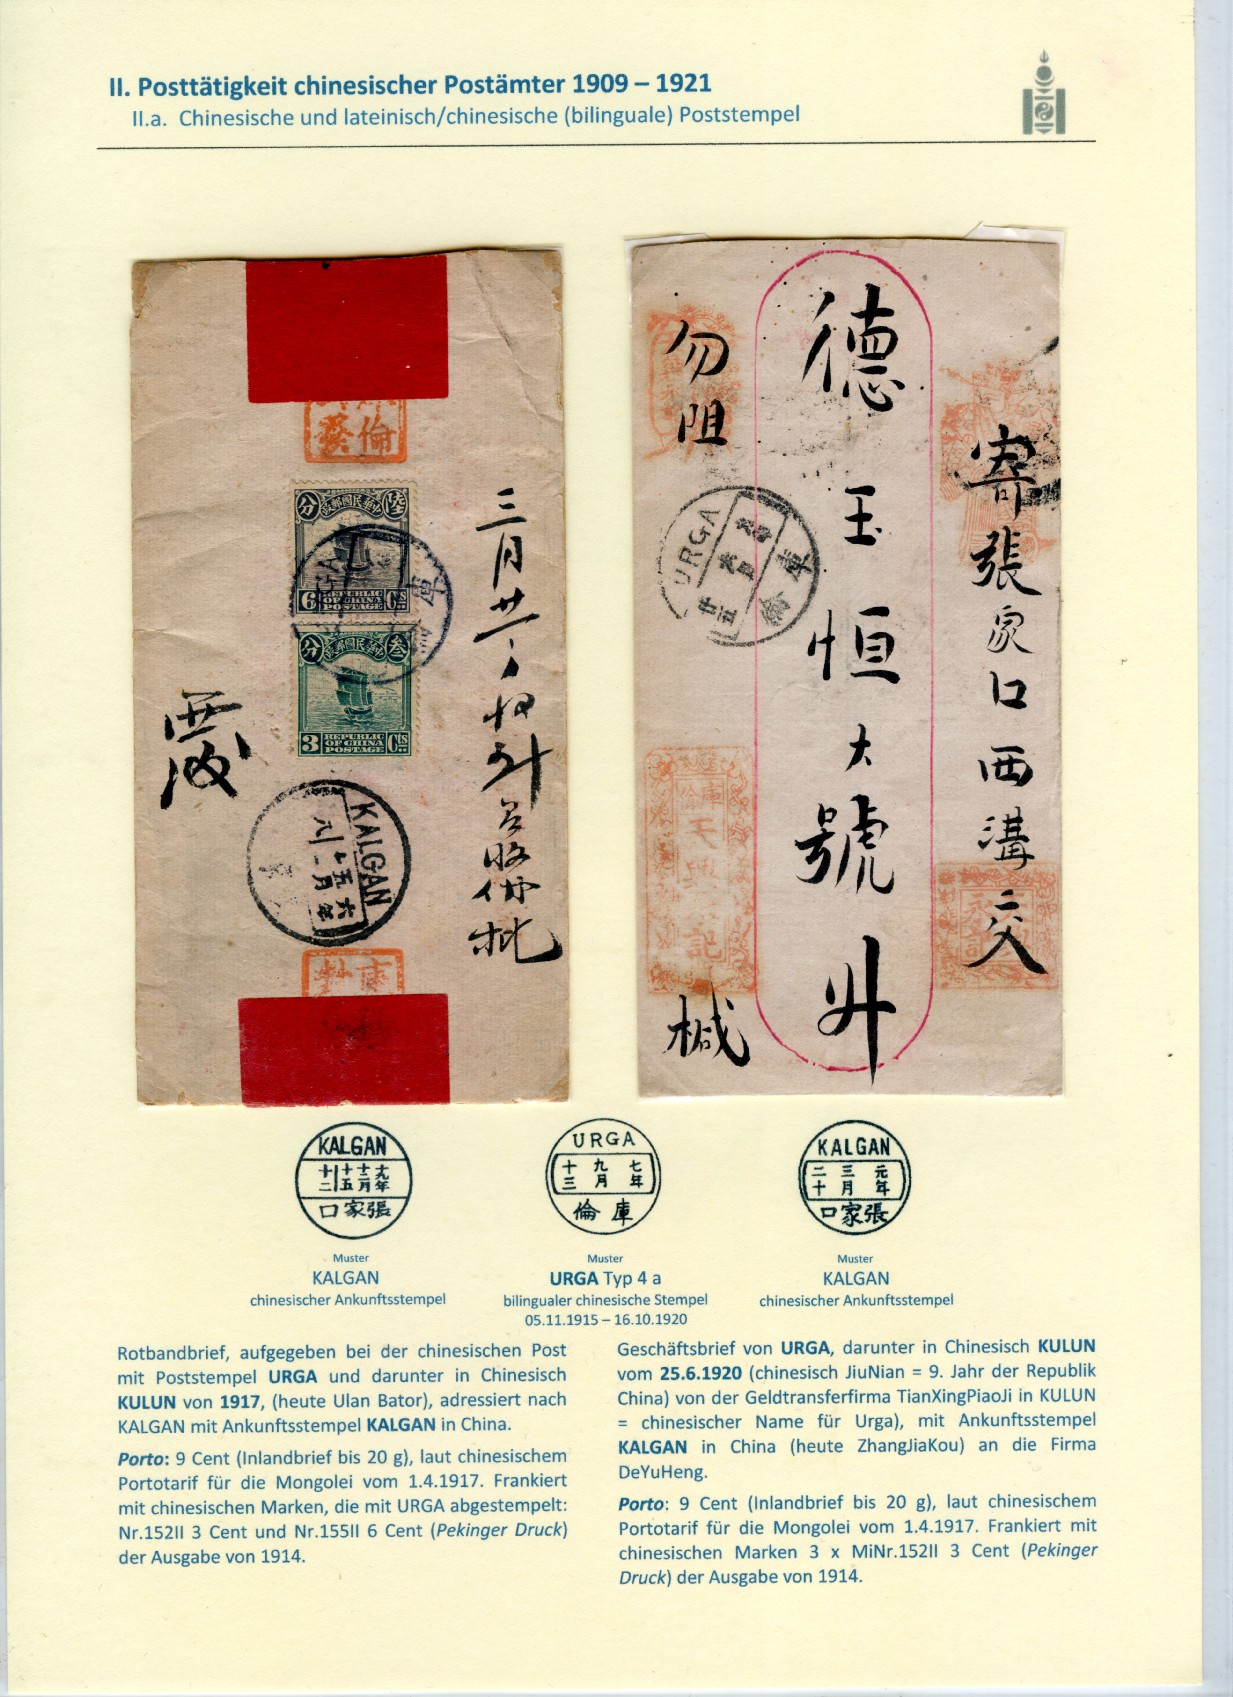 II. Posttätigkeit chinesischer Postämter 1909 – 1921
II.a. Chinesische und lateinisch/chinesische (bilinguale) Poststempel
倫
分 中華民國郵政 陸
6 REPUBLIC OF CHINA POSTAGE Cts
分 中華民國郵政 叁
3 REPUBLIC OF CHINA POSTAGE Cts
三月廿
KALGAN
六年
五月
寄張家口西溝交
德玉恒大號升
勿阻
URGA
九年
六月
廿五
庫倫
庫倫
天興
記
椷
KALGAN
九年
十二月
十五
十二
張家口
URGA
七年
九月
十三
庫倫
KALGAN
元年
三月
二十
張家口
Muster
KALGAN
chinesischer Ankunftsstempel
Muster
URGA Typ 4 a
bilingualer chinesische Stempel
05.11.1915 – 16.10.1920
Muster
KALGAN
chinesischer Ankunftsstempel
Rotbandbrief, aufgegeben bei der chinesischen Post
mit Poststempel URGA und darunter in Chinesisch
KULUN von 1917, (heute Ulan Bator), adressiert nach
KALGAN mit Ankunftsstempel KALGAN in China.
Porto: 9 Cent (Inlandbrief bis 20 g), laut chinesischem
Portotarif für die Mongolei vom 1.4.1917. Frankiert
mit chinesischen Marken, die mit URGA abgestempelt:
Nr.152II 3 Cent und Nr.155II 6 Cent (Pekinger Druck)
der Ausgabe von 1914.
Geschäftsbrief von URGA, darunter in Chinesisch KULUN
vom 25.6.1920 (chinesisch JiuNian = 9. Jahr der Republik
China) von der Geldtransferfirma TianXingPiaoJi in KULUN
= chinesischer Name für Urga), mit Ankunftsstempel
KALGAN in China (heute ZhangJiaKou) an die Firma
DeYuHeng.
Porto: 9 Cent (Inlandbrief bis 20 g), laut chinesischem
Portotarif für die Mongolei vom 1.4.1917. Frankiert mit
chinesischen Marken 3 x MiNr.152II 3 Cent (Pekinger
Druck) der Ausgabe von 1914.